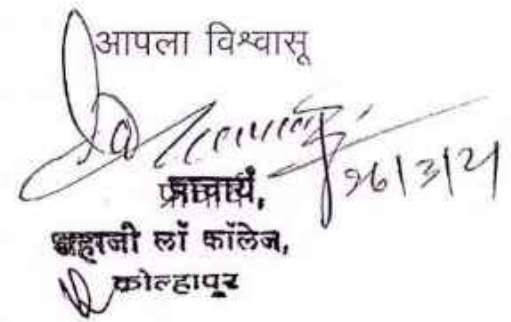 आपला विश्वासू
26/3/21
प्राचार्य,
शहाजी लॉ कॉलेज,
कोल्हापूर